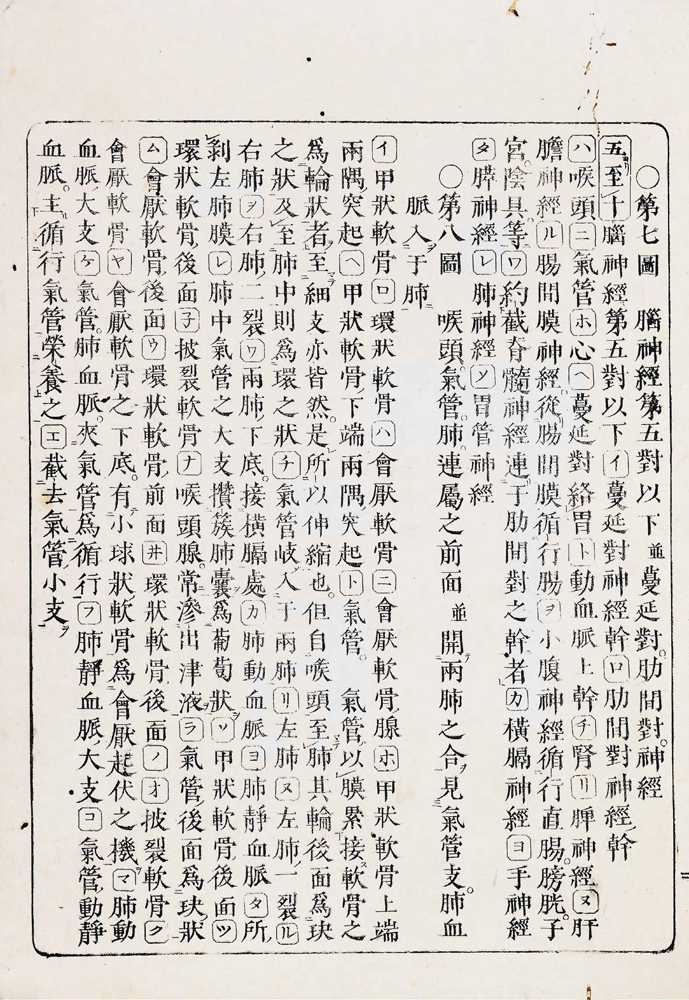 〇第七圖　腦神經第五對以下並蔓延對。肋間對。神經
五至十腦神經第五對以下イ蔓延對神經幹ロ肋間對神經幹
ハ喉頭ニ氣管ホ心ヘ蔓延對絡胃ト動血脈上幹チ腎リ脾神經ヌ肝
膽神經ル腸間膜神經。從腸間膜循行腸ヲ小腹神經循行直腸。膀胱。子
宮陰具等ワ約截脊髓神經連于肋間對之幹者カ橫膈神經ヨ手神經
タ膵神經レ肺神經ソ胃管神經
〇第八圖　喉頭。氣管。肺。連屬之前面並開兩肺之合見氣管支。肺血
脈入于肺
イ甲狀軟骨ロ環狀軟骨ハ會厭軟骨ニ會厭軟骨腺ホ甲狀軟骨上端
兩隅突起ヘ甲狀軟骨下端兩隅突起ト氣管。氣管以膜累接軟骨之
爲輪狀者。至細支亦皆然。是所以伸縮也。但自喉頭至肺其輪後面爲玦
之狀。及至肺中則爲環之狀チ氣管岐入于兩肺リ左肺ヌ左肺一裂ル
右肺ヲ右肺二裂ワ兩肺下底。接橫膈處カ肺動血脈ヨ肺靜血脈タ所
剥左肺膜レ肺中氣管之大支攢簇肺囊爲葡萄狀ソ甲狀軟骨後面ツ
環狀軟骨後面子披裂軟骨ナ喉頭腺。常滲出津液ラ氣管後面爲玦狀
ム會厭軟骨後面ウ環狀軟骨前面井環狀軟骨後面ノオ披裂軟骨ク
會厭軟骨ヤ會厭軟骨之下底。有小球狀軟骨爲會厭起伏之機マ肺動
血脈大支ケ氣管。肺血脈。夾氣管爲循行フ肺靜血脈大支コ氣管動靜
血脈。主循行氣管榮養之エ截去氣管小支